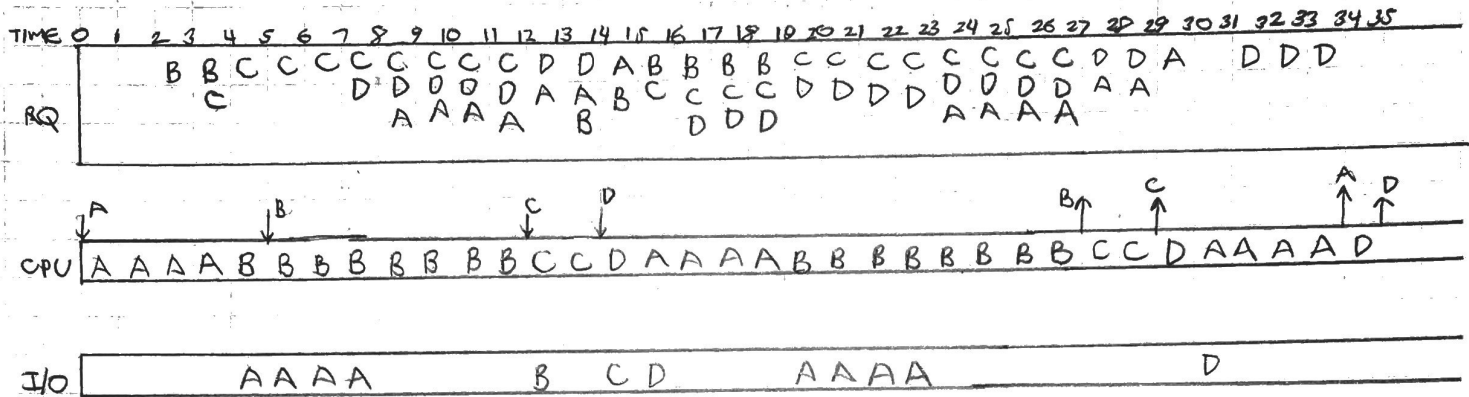 TIME 0 1 2 3 4 5 6 7 8 9 10 11 12 13 14 15 16 17 18 19 20 21 22 23 24 25 26 27 28 29 30 31 32 33 34 35
B B C C C C C C C C D D A B B B B C C C C C C C C D D A D D D
RQ C D D D D D A A B C C C C D D D D D D D D A A
A A A A B D D D A A A A
A B C D B C A D
CPU A A A A B B B B B B B B C C D A A A A B B B B B B B B C C D A A A A D
I/O A A A A B C D A A A A D